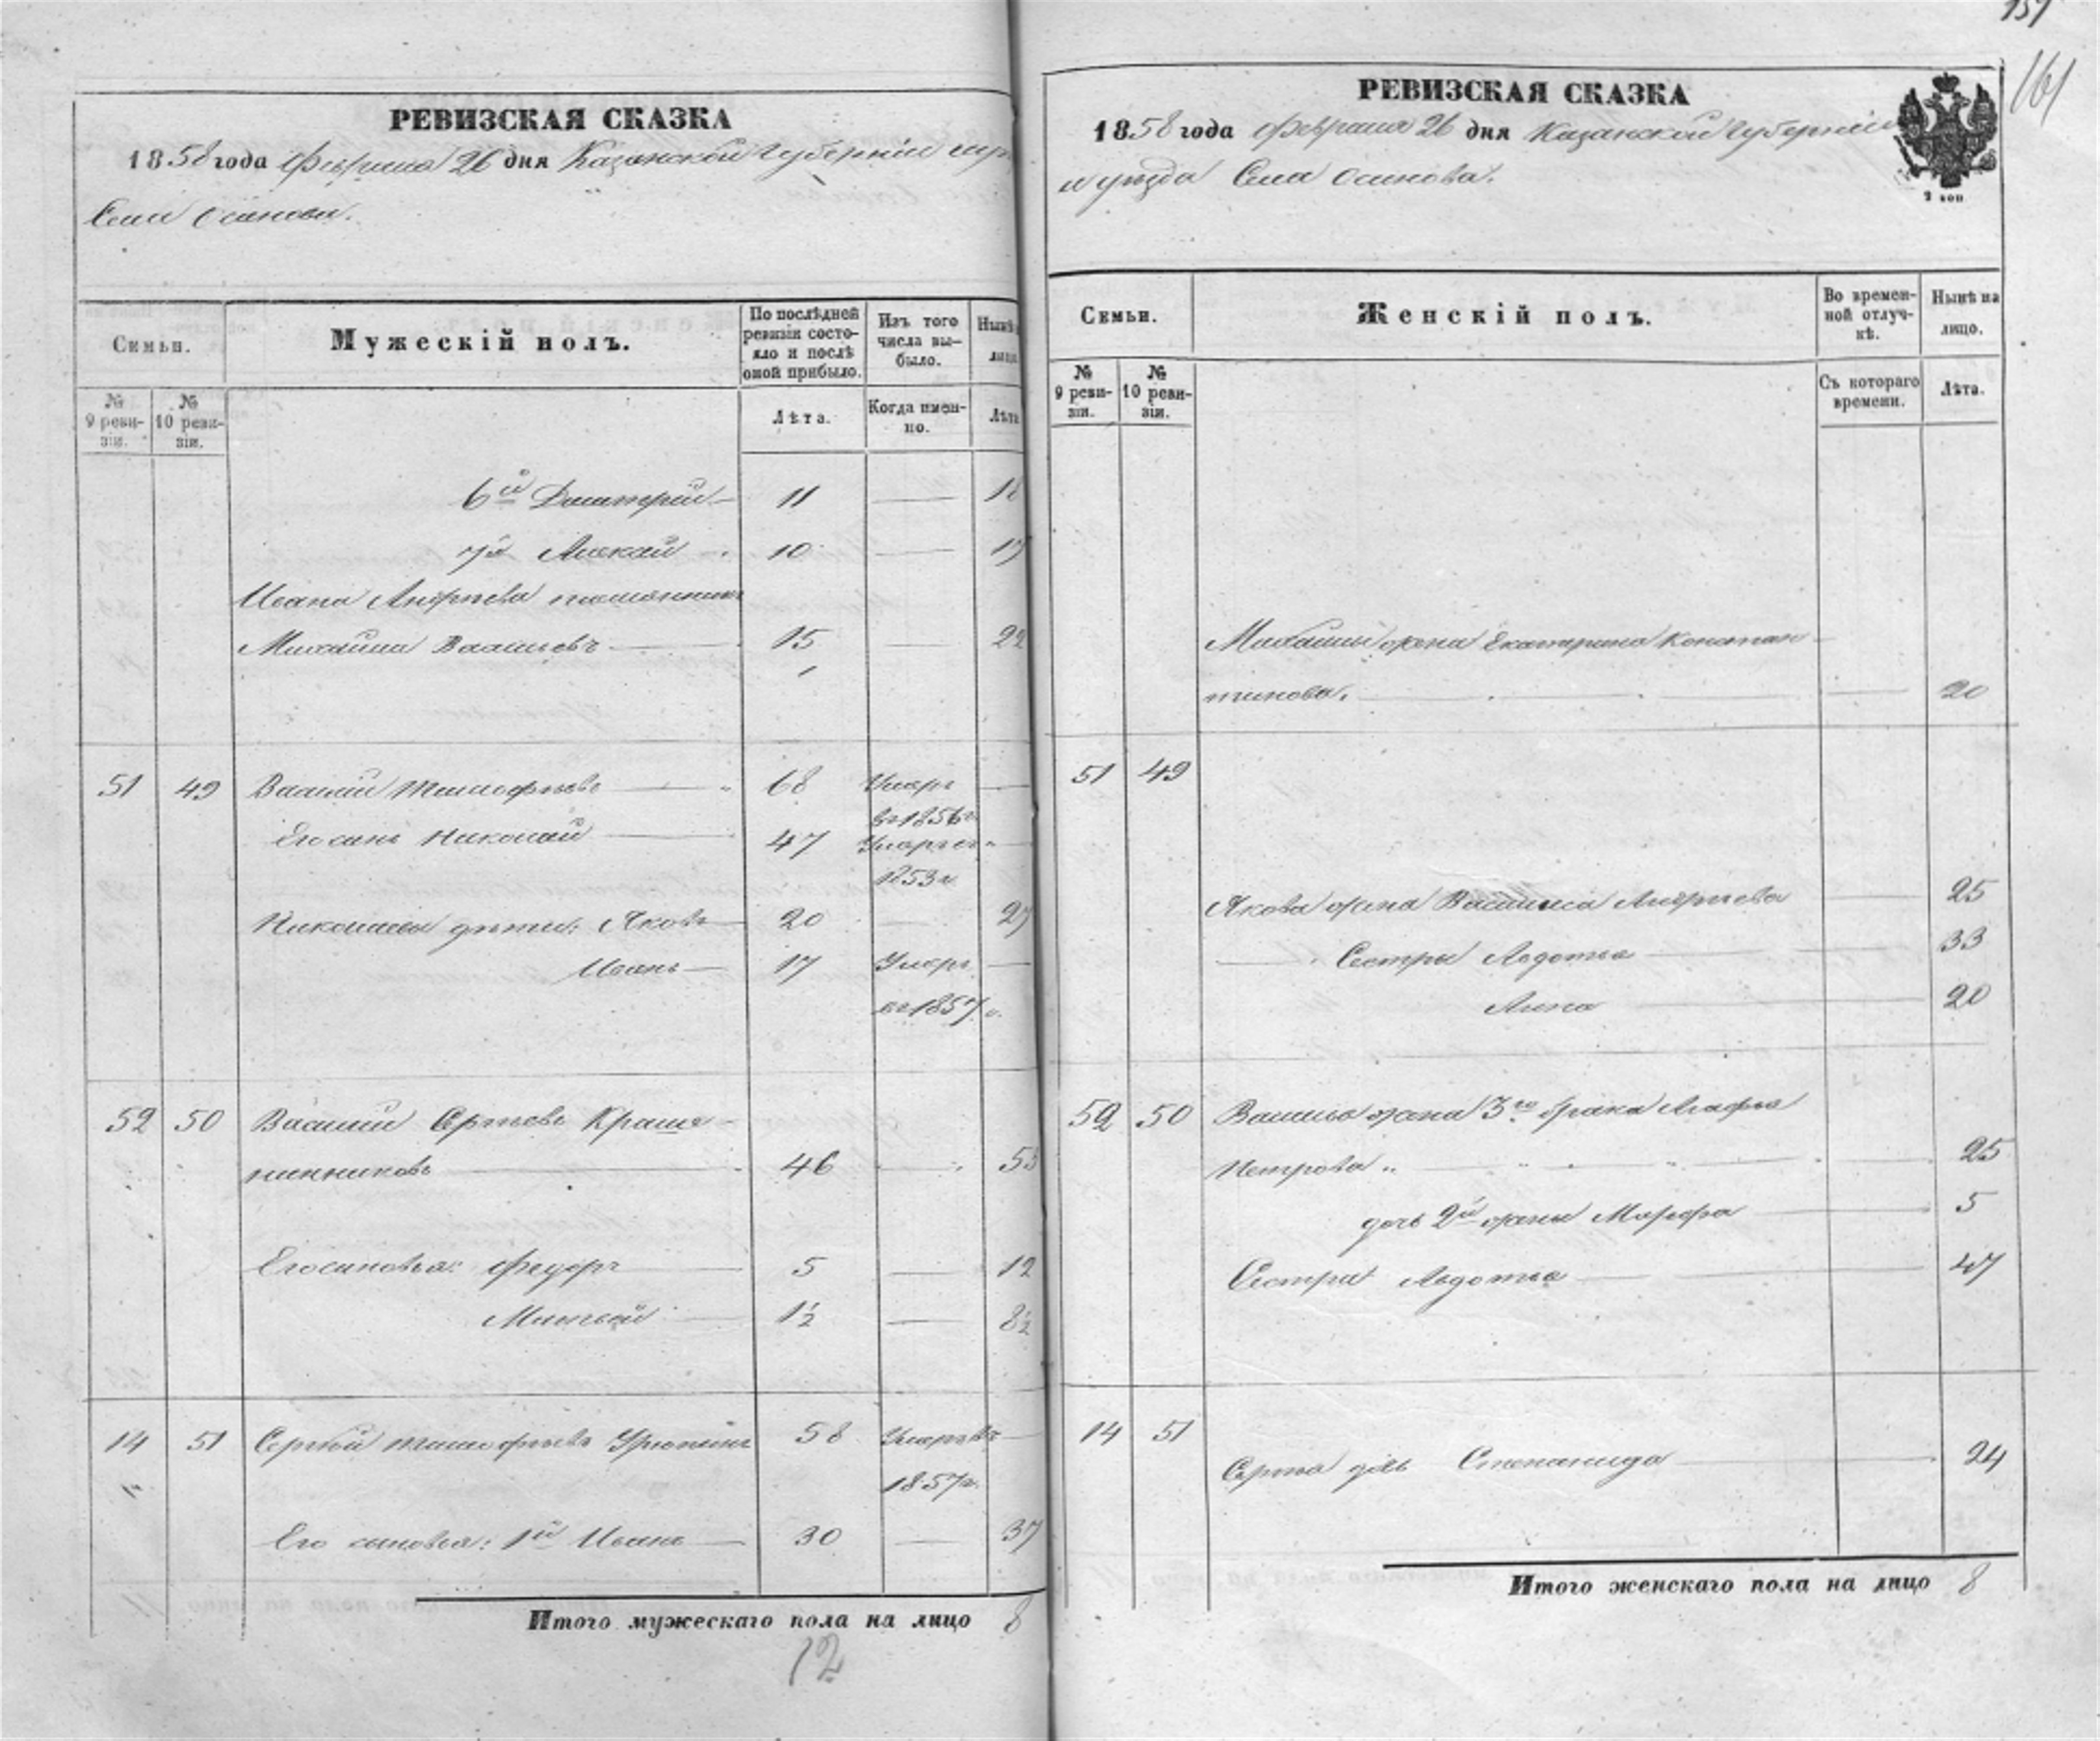 РЕВИЗСКАЯ СКАЗКА
1858 года Февраля 26 дня Казанской Губернии
Села Осинова.
Семьи.
Мужескій полъ.
По послѣдней ревизіи состо-
яло и послѣ
оной прибыло.
Изъ того
числа вы-
было.
Нынѣ
лицо
№
9 реви-
зіи.
№
10 реви-
зіи.
Лѣта.
Когда имен-
но.
Лѣта
6й Дмитрій 11 — 18
7й Алексѣй 10 — 17
Ивана Андрѣева племянникъ
Михайла Васильевъ 15 — 22
51 49 Василій Тимофѣевъ 68 Умеръ —
въ 1856 г.
Его сынъ Николай 47 Умеръ въ —
1853 г.
Николаевы дѣти: Яковъ 20 — 27
Иванъ 17 Умеръ —
въ 1857 г.
52 50 Василій Сергѣевъ Краше-
нинниковъ 46 — 53
Его сыновья: Федоръ 5 — 12
Матвѣй 1½ — 8½
14 51 Сергѣй Тимофѣевъ Урюпинъ 58 Умеръ въ —
1857 г.
Его сыновья: 1й Иванъ 30 — 37
Итого мужескаго пола на лицо 8
12
157
161
РЕВИЗСКАЯ СКАЗКА
1858 года Февраля 26 дня Казанской Губерніи
и уѣзда Села Осинова.
2 коп
Семьи.
Женскій полъ.
Во времен-
ной отлуч-
кѣ.
Нынѣ на
лицо.
№
9 реви-
зіи.
№
10 реви-
зіи.
Съ котораго
времени.
Лѣта.
Михайлы жена Екатерина Констан-
тинова. — 20
51 49
Якова жена Василиса Андрѣева — 25
Сестры Авдотья — 33
Анна — 20
52 50 Василья жена 3го брака Агафья
Петрова — 25
дочь 2й жены Марфа — 5
Сестра Авдотья — 47
14 51
Сергѣя дочь Степанида — 24
Итого женскаго пола на лицо 8